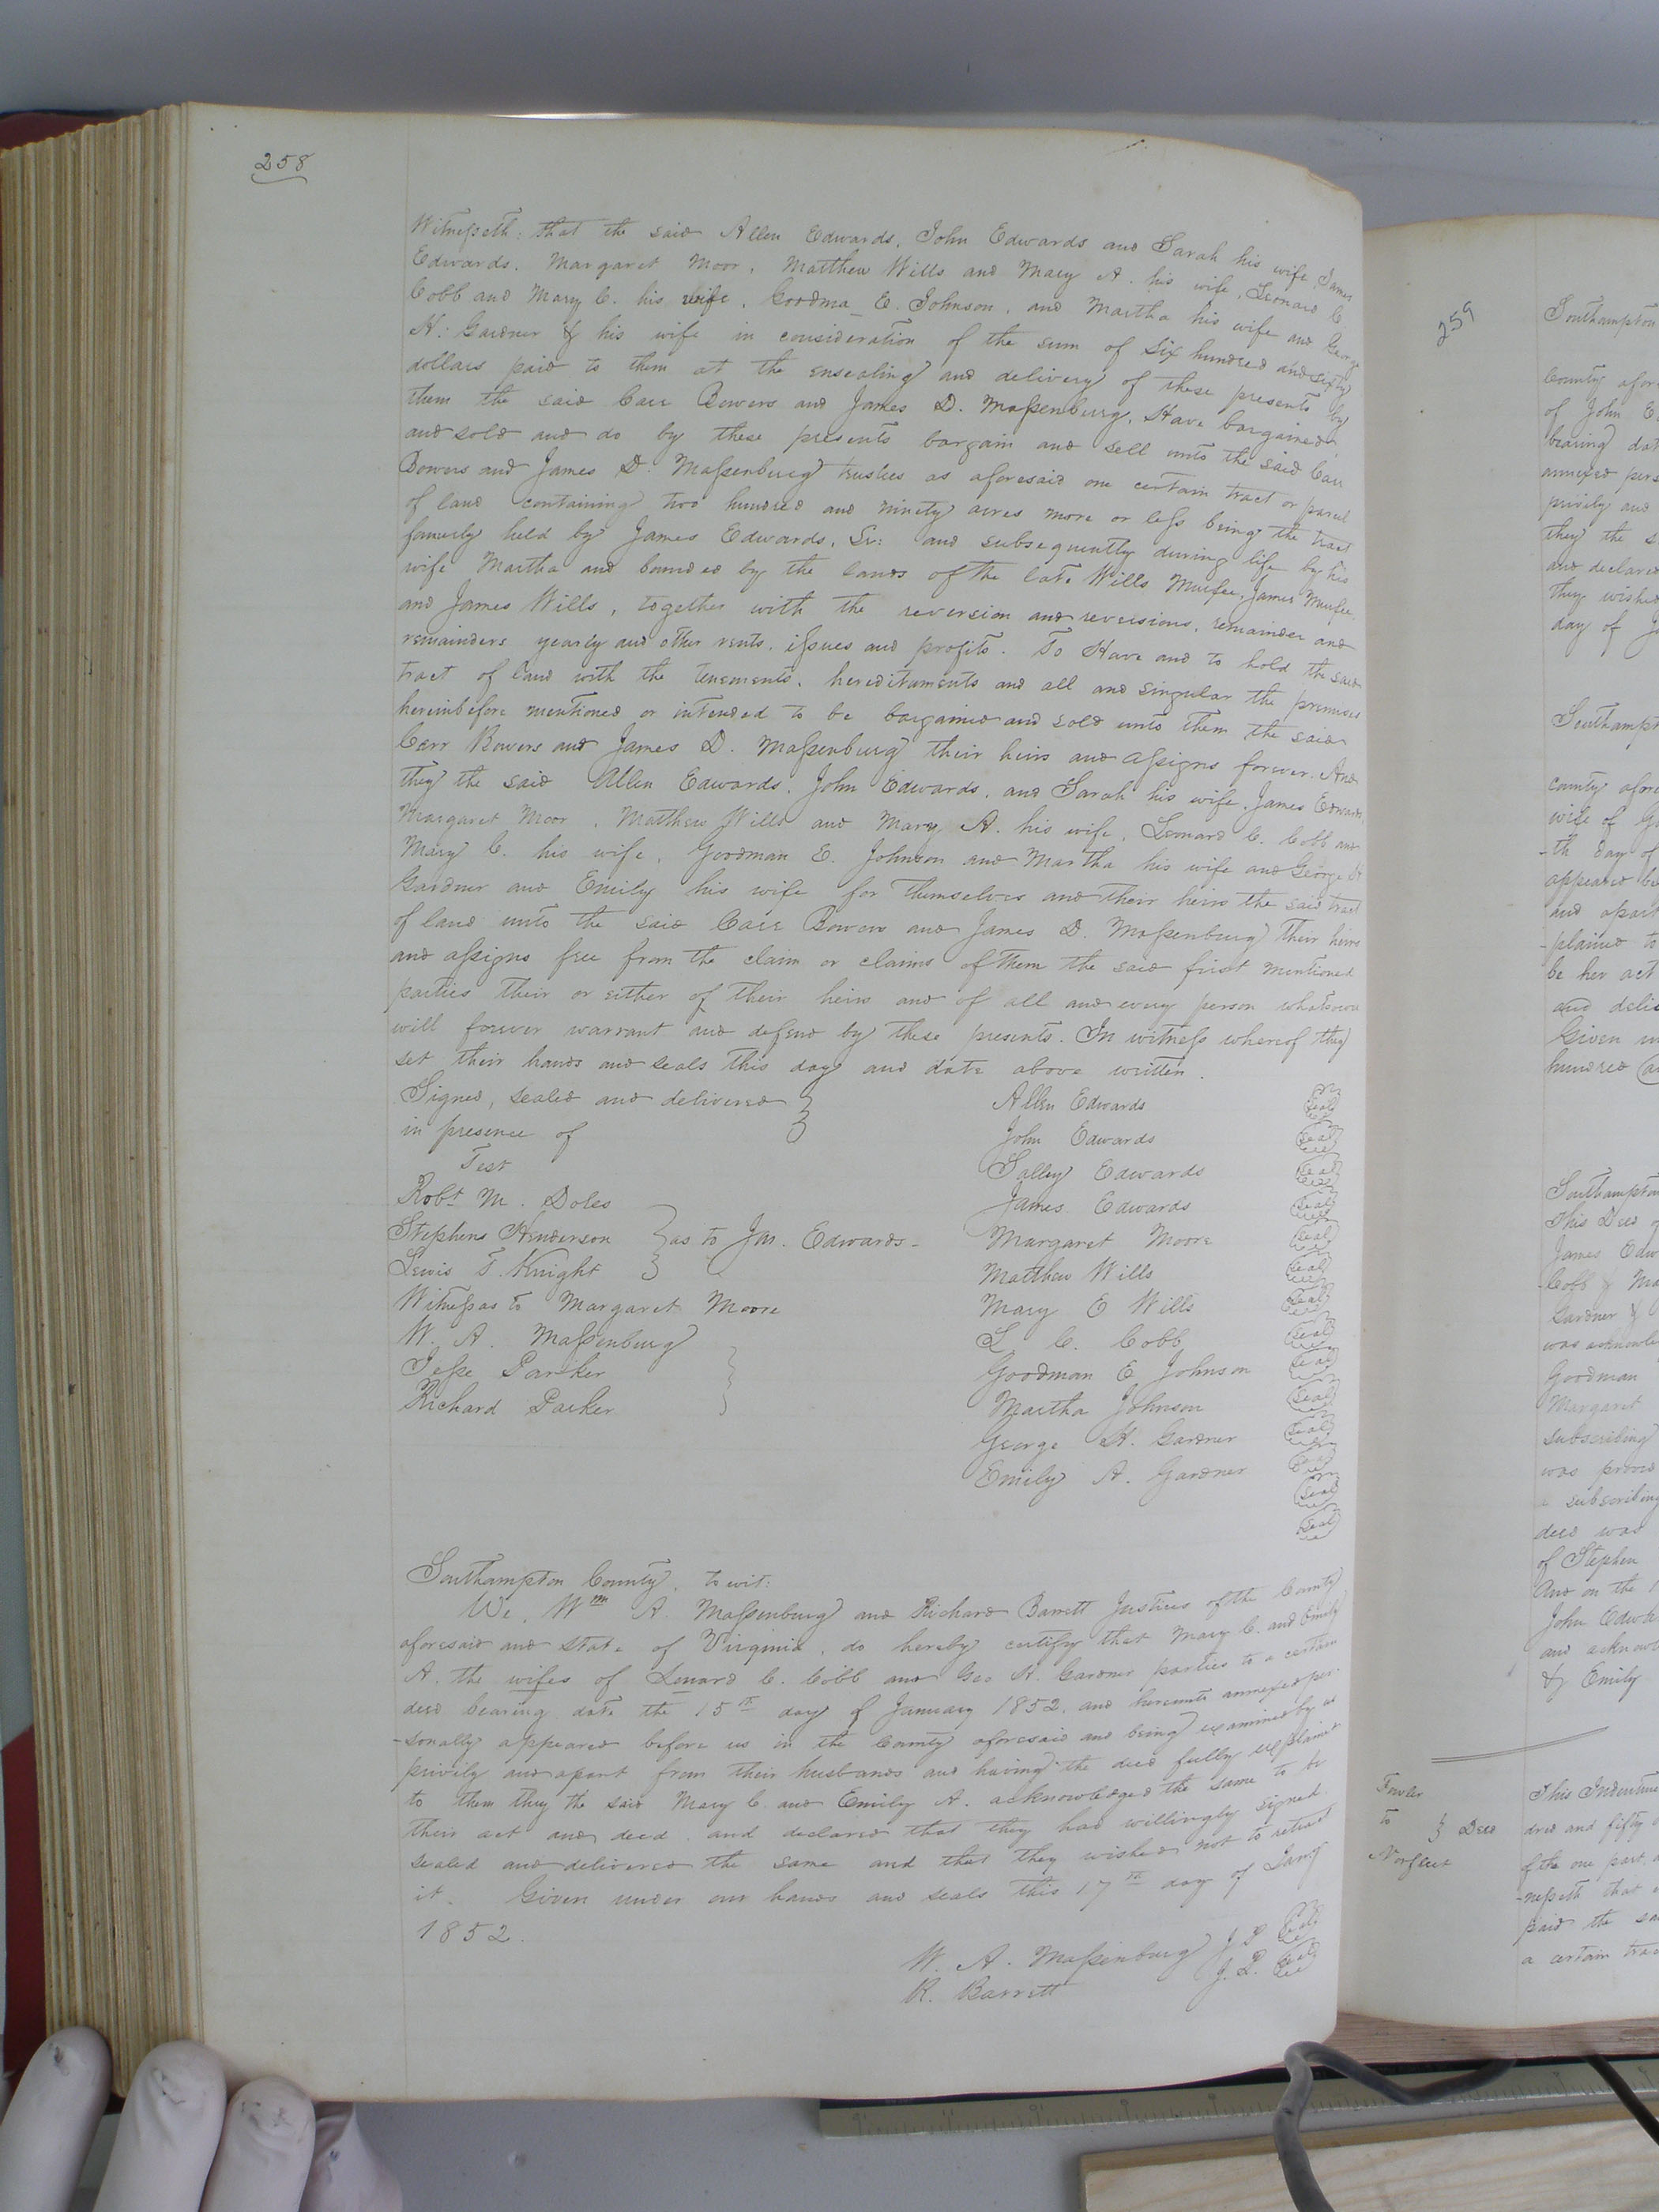 258
Witnesseth: that the said Allen Edwards, John Edwards and Sarah his wife, James
Edwards, Margaret Moor, Matthew Wills and Mary A. his wife, Leonard C.
Cobb and Mary C. his wife, Goodma_ E. Johnson, and Martha his wife and George
H. Gardner & his wife in consideration of the sum of six hundred and sixty
dollars paid to them at the ensealing and delivery of these presents by
them the said Carr Bowers and James D. Massenburg, Have bargained
and sold and do by these presents bargain and sell unto the said Carr
Bowers and James D. Massenburg trustees as aforesaid one certain tract or parcel
of land containing two hundred and ninety acres more or less being the tract
formerly held by James Edwards, Sr: and subsequently during life by his
wife Martha and bounded by the lands of the late Wills Murfee, James Murfee
and James Wills, together with the reversion and reversions, remainder and
remainders yearly and other rents, issues and profits. To Have and to hold the said
tract of land with the tenements, hereditaments and all and singular the premises
hereinbefore mentioned or intended to be bargained and sold unto them the said
Carr Bowers and James D. Massenburg their heirs and assigns forever. And
they the said Allen Edwards, John Edwards, and Sarah his wife, James Edwards,
Margaret Moor, Matthew Wills and Mary A. his wife, Leonard C. Cobb and
Mary C. his wife, Goodman E. Johnson and Martha his wife and George H
Gardner and Emily his wife for themselves and their heirs the said tract
of land unto the said Carr Bowers and James D. Massenburg their heirs
and assigns free from the claim or claims of them the said first mentioned
parties their or either of their heirs and of all and every person whatsoever
will forever warrant and defend by these presents. In witness whereof they
set their hands and seals this day and date above written.
Signed, sealed and delivered
in presence of
Test
Robt M. Doles
Stephens Henderson } as to Jas. Edwards -
Lewis T. Knight
Witness as to Margaret Moore
W. A. Massenburg
Jesse Parker
Richard Parker
Allen Edwards Seal
John Edwards Seal
Salley Edwards Seal
James Edwards Seal
Margaret Moore Seal
Matthew Wills Seal
Mary E Wills Seal
L C. Cobb Seal
Goodman E Johnson Seal
Martha Johnson Seal
George H. Gardner Seal
Emily A. Gardner Seal
Seal
Seal
Southampton County, to wit:
We, Wm A. Massenburg and Richard Barrett Justices of the County
aforesaid and state of Virginia, do hereby certify that Mary C. and Emily
A. the wifes of Lenard C. Cobb and Geo H. Gardner parties to a certain
deed bearing date the 15th day of January 1852, and hereunto annexed per-
-sonally appeared before us in the County aforesaid and being examined by us
privily and apart from their husbands and having the deed fully explained
to them they the said Mary C. and Emily A. acknowledged the same to be
their act and deed and declared that they had willingly signed
sealed and delivered the same and that they wished not to retract
it. Given under our hands and seals this 17th day of Jany
1852.
W. A. Massenburg J P Seal
R. Barrett J. P. Seal
259
Southampton
County afore
of John E
bearing dat
annexed pers
privily and
they the s
and declared
they wished
day of J
Southampt
county afore
wife of G
-th day of
appeared be
and apart
-plained to
be her act
and deliv
Given un
hundred
Southampton
This Deed
James Edw
Cobb & Ma
Gardner &
was acknowle
Goodman
Margaret
subscribing
was proved
subscribing
deed was
of Stephen
And on the 1
John Edwa
and acknowl
& Emily
Fowler
to } Deed
Norfleet
This Indenture
dred and fifty
of the one part, a
-nesseth that
paid the sa
a certain trac